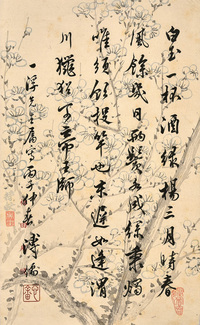 白玉一杯酒綠楊三月時春
風餘幾日兩鬢各成絲秉燭
唯須飲投竿也未遲如逢渭
川獵猶可帝王師
一浮先生屬寫丙子仲春溥儒